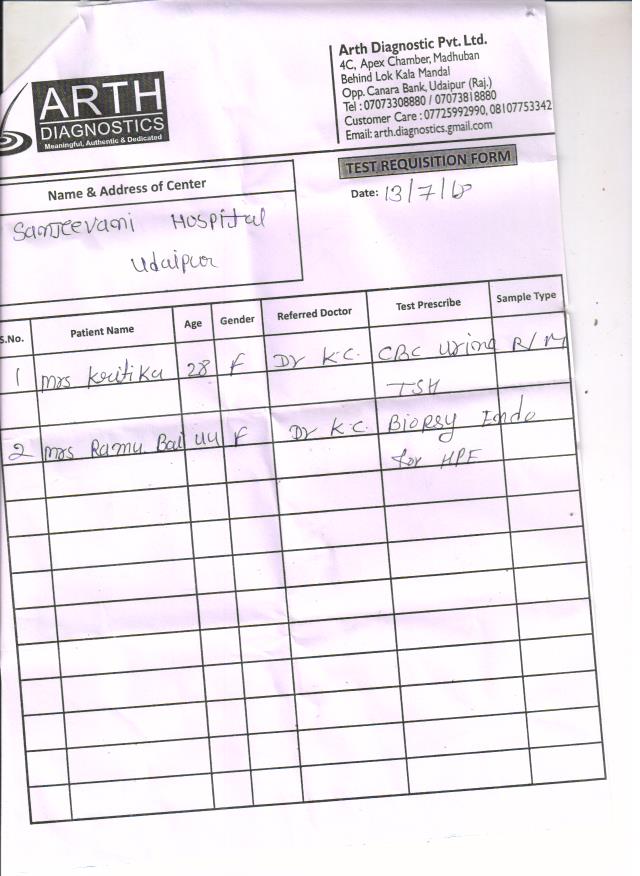 ARTH
DIAGNOSTICS
Meaningful, Authentic & Dedicated
Arth Diagnostic Pvt. Ltd.
4C, Apex Chamber, Madhuban
Behind Lok Kala Mandal
Opp. Canara Bank, Udaipur (Raj.)
Tel : 07073308880 / 07073818880
Customer Care : 07725992990, 08107753342
Email: arth.diagnostics.gmail.com
TEST REQUISITION FORM
Date: 13/7/
Name & Address of Center
Sanjeevani Hospital
Udaipur
S.No. Patient Name Age Gender Referred Doctor Test Prescribe Sample Type
1 Mrs Kritika 28 F Dr K.C. CBC Urine R/M
TSH
2 Mrs Ramu Bai 44 F Dr K.C. Biopsy Endo
for HPE